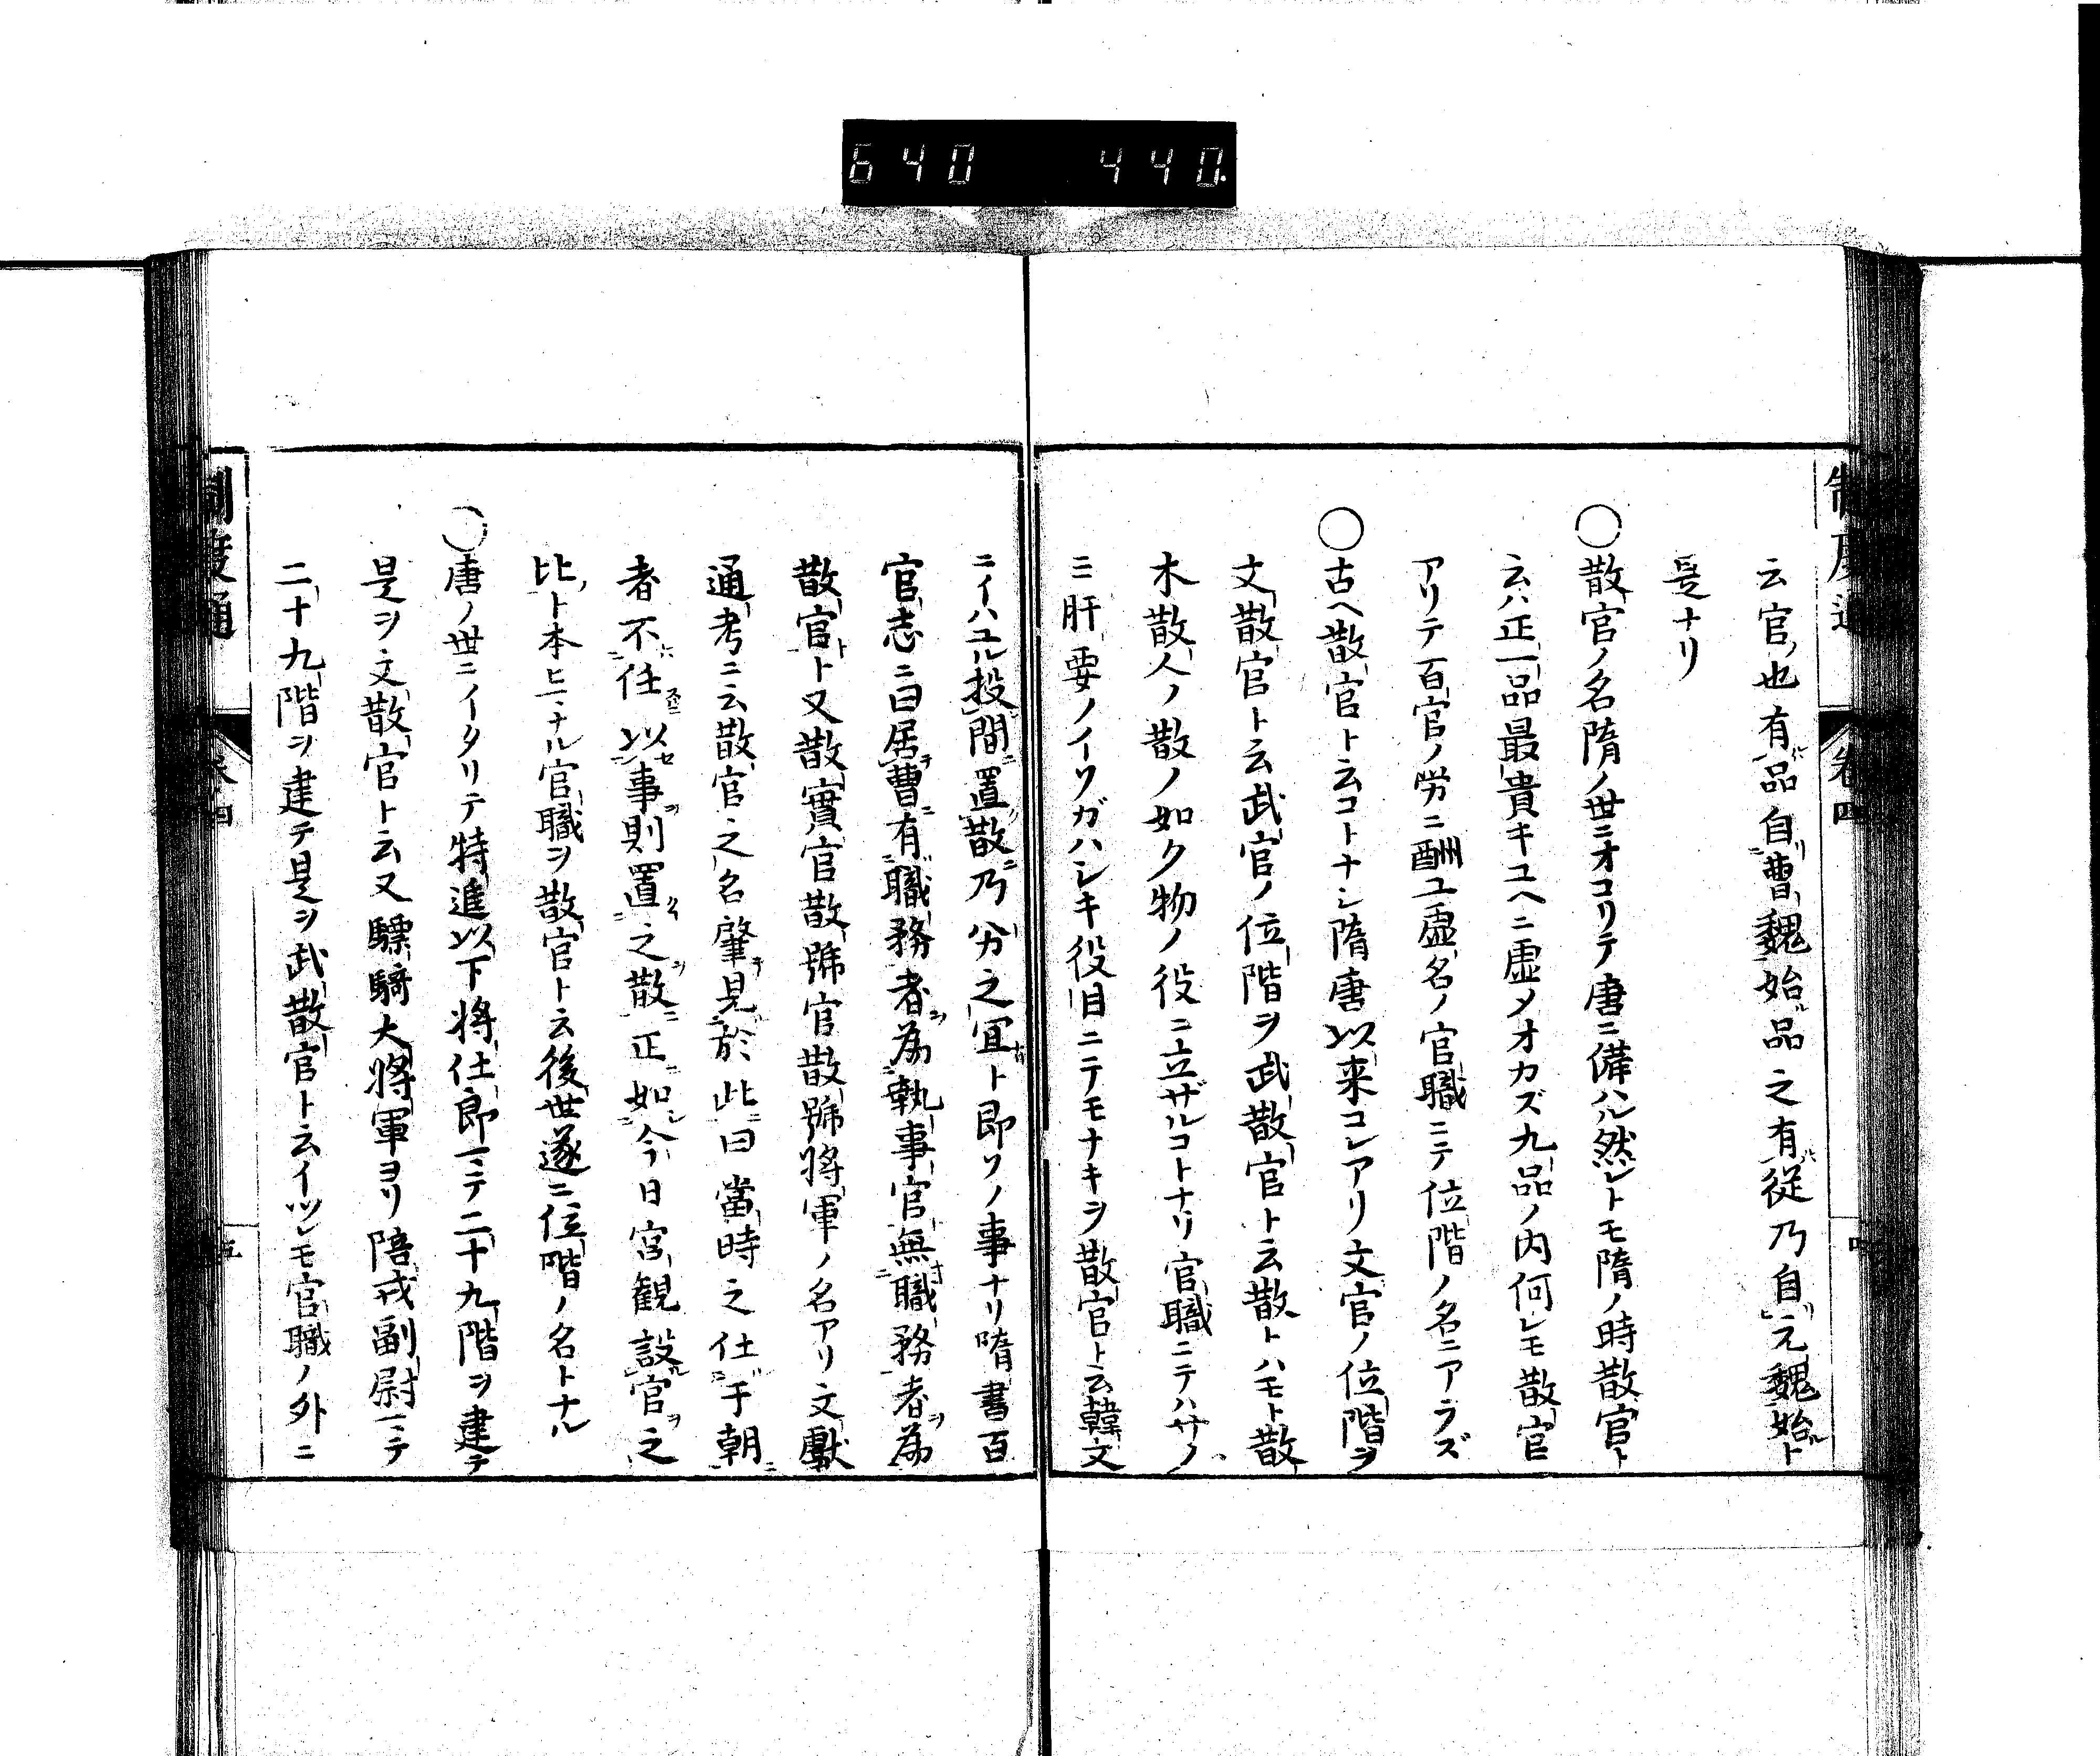 640 440.
制度通 卷四
云官也有品自曹魏始品之有従乃自元魏始ト
是ナリ
○散官ノ名隋ノ世ニオコリテ唐ニ備ハル然レトモ隋ノ時散官ト
云ハ正一品最貴キユヘニ虚メオカズ九品ノ内何レモ散官
アリテ百官ノ労ニ酬ユ虚名ノ官職ニテ位階ノ名ニアラズ
○古ヘ散官ト云コトナシ隋唐以来コレアリ文官ノ位階ヲ
文散官ト云武官ノ位階ヲ武散官ト云散トハモト散
木散人ノ散ノ如ク物ノ役ニ立ザルコトナリ官職ニテハサノ
ミ肝要ノイソガハシキ役目ニテモナキヲ散官ト云韓文
ニイハユル投間置散乃分之宜ト即ソノ事ナリ隋書百
官志ニ曰居曹有職務者為執事官無職務者為
散官ト又散實官散號官散號將軍ノ名アリ文獻
通考ニ云散官之名肇見於此曰當時之仕于朝
者不任以事則置之散正如今日宮観設官之
比ト本ヒマナル官職ヲ散官ト云後世遂ニ位階ノ名トナル
○唐ノ世ニイタリテ特進以下將仕郎ニテ二十九階ヲ建テ
是ヲ文散官ト云又驃騎大將軍ヨリ陪戎副尉ニテ
二十九階ヲ建テ是ヲ武散官ト云イツレモ官職ノ外ニ
制度通 卷四 五